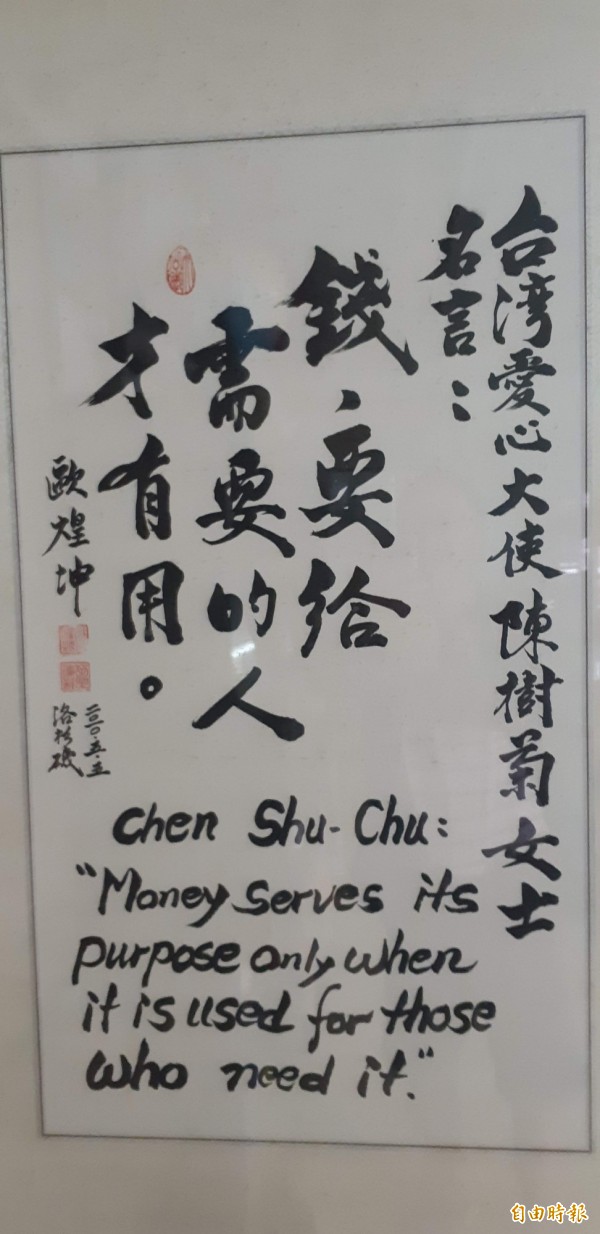 台湾愛心大使陳樹菊女士
名言：
錢，要給
需要的人
才有用。
歐煌坤
二〇一〇.五.五
洛杉磯
Chen Shu-Chu:
"Money serves its
purpose only when
it is used for those
who need it."
自由時報